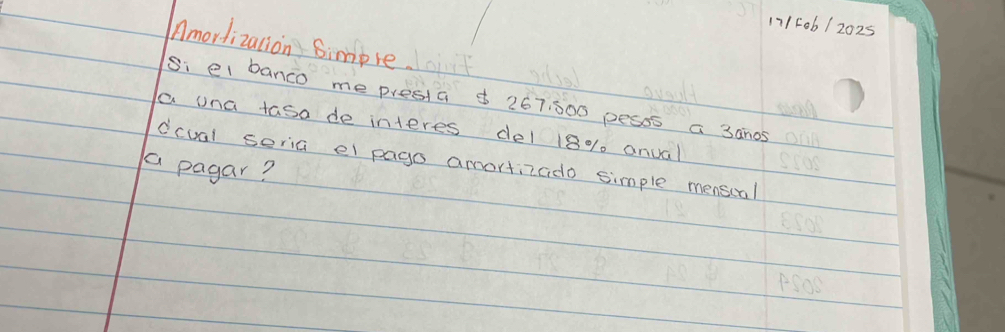 17/Feb/2025
Amortización Simple.
Si el banco me presta $ 267,800 pesos a 3años
a una tasa de interes del 18% anual
¿cual seria el pago amortizado simple mensual
a pagar?